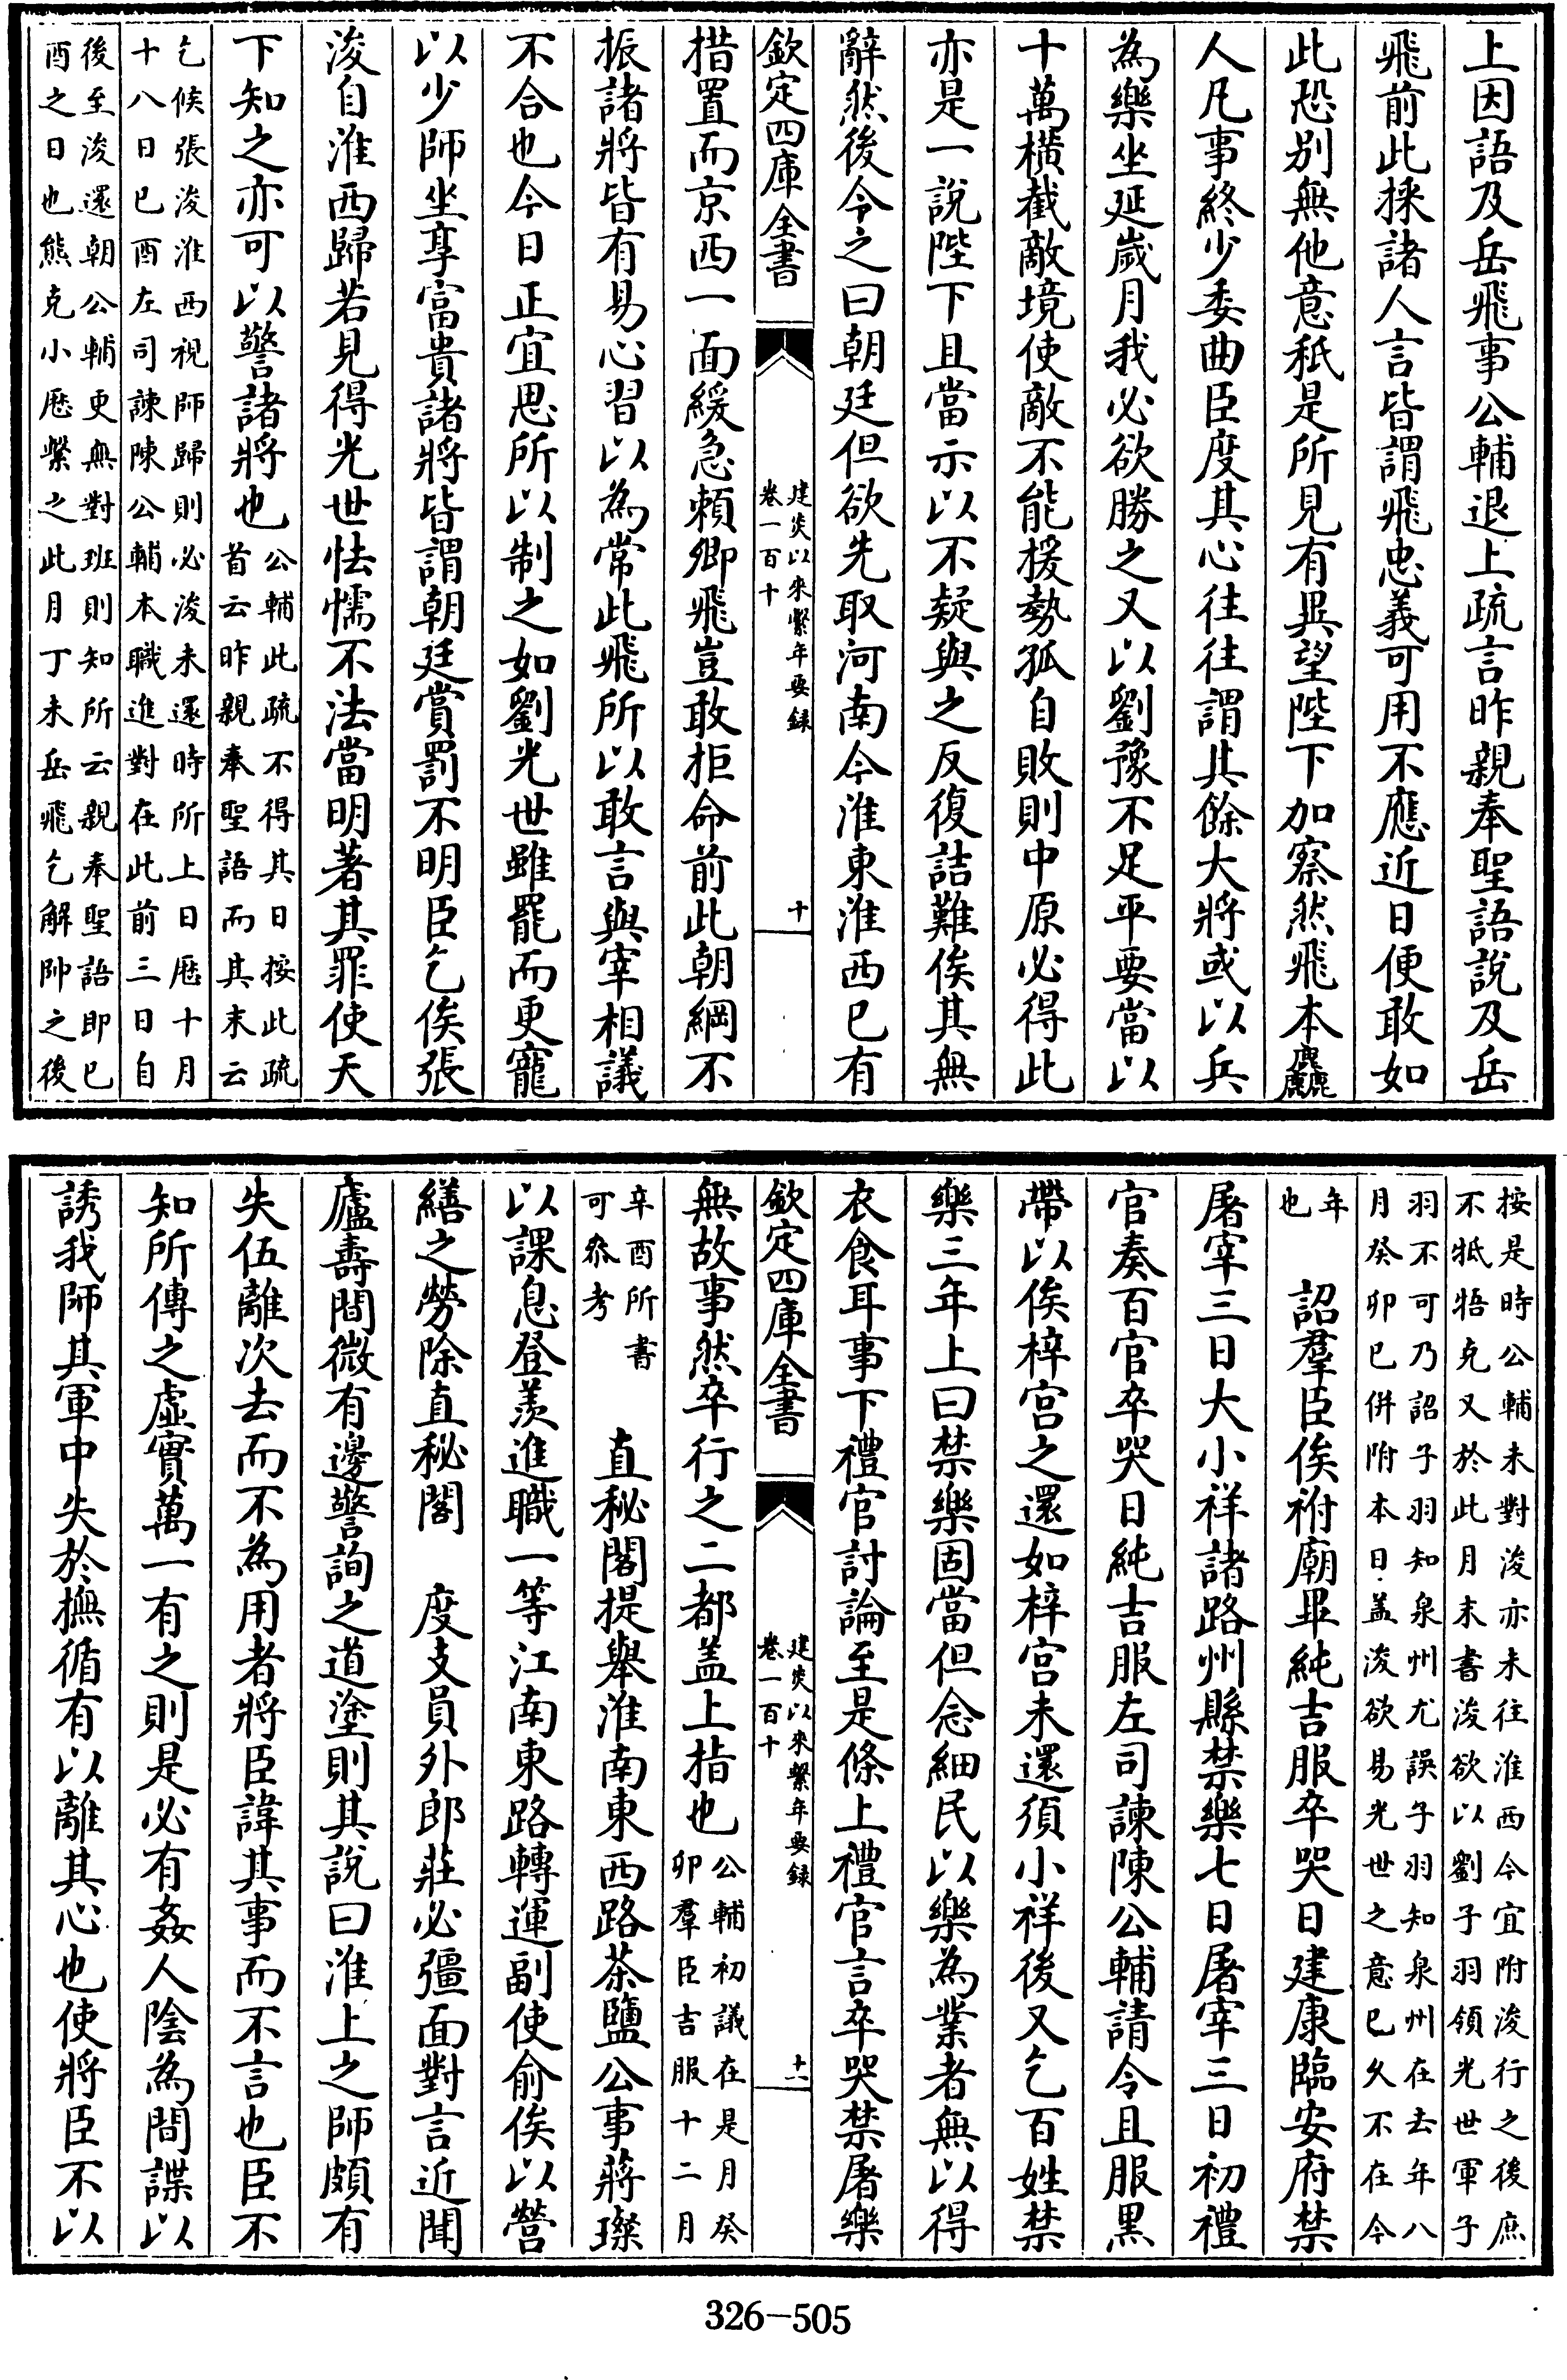 上因語及岳飛事公輔退上疏言昨親奉聖語說及岳
飛前此採諸人言皆謂飛忠義可用不應近日便敢如
此恐别無他意秖是所見有異望陛下加察然飛本麤
人凡事終少委曲臣度其心往往謂其餘大將或以兵
為樂坐延歲月我必欲勝之又以劉豫不足平要當以
十萬橫截敵境使敵不能援勢孤自敗則中原必得此
亦是一說陛下且當示以不疑與之反復詰難俟其無
辭然後令之曰朝廷但欲先取河南今淮東淮西已有
欽定四庫全書
建炎以來繫年要録
卷一百十
十
措置而京西一面緩急賴卿飛豈敢拒命前此朝綱不
振諸將皆有易心習以為常此飛所以敢言與宰相議
不合也今日正宜思所以制之如劉光世雖罷而更寵
以少師坐享富貴諸將皆謂朝廷賞罰不明臣乞俟張
浚自淮西歸若見得光世怯懦不法當明著其罪使天
下知之亦可以警諸將也
公輔此疏不得其日按此疏
首云昨親奉聖語而其末云
乞候張浚淮西視師歸則必浚未還時所上日厯十月
十八日已酉左司諫陳公輔本職進對在此前三日自
後至浚還朝公輔更無對班則知所云親奉聖語即已
酉之日也熊克小厯繫之此月丁未岳飛乞解帥之後
按是時公輔未對浚亦未往淮西今宜附浚行之後庶
不牴牾克又於此月末書浚欲以劉子羽領光世軍子
羽不可乃詔子羽知泉州尤誤子羽知泉州在去年八
月癸卯已併附本日盖浚欲易光世之意已久不在今
年
也
詔羣臣俟祔廟畢純吉服卒哭日建康臨安府禁
屠宰三日大小祥諸路州縣禁樂七日屠宰三日初禮
官奏百官卒哭日純吉服左司諫陳公輔請令且服黑
帶以俟梓宮之還如梓宮未還須小祥後又乞百姓禁
樂三年上曰禁樂固當但念細民以樂為業者無以得
衣食耳事下禮官討論至是條上禮官言卒哭禁屠樂
欽定四庫全書
建炎以來繫年要録
卷一百十
十一
無故事然卒行之二都盖上指也
公輔初議在是月癸
卯羣臣吉服十二月
辛酉所書
可叅考
直秘閣提舉淮南東西路茶鹽公事蔣璨
以課息登羨進職一等江南東路轉運副使俞俟以營
繕之勞除直秘閣
度支員外郎莊必彊面對言近聞
廬壽間微有邊警詢之道塗則其說曰淮上之師頗有
失伍離次去而不為用者將臣諱其事而不言也臣不
知所傳之虛實萬一有之則是必有姦人陰為間諜以
誘我師其軍中失於撫循有以離其心也使將臣不以
326-505